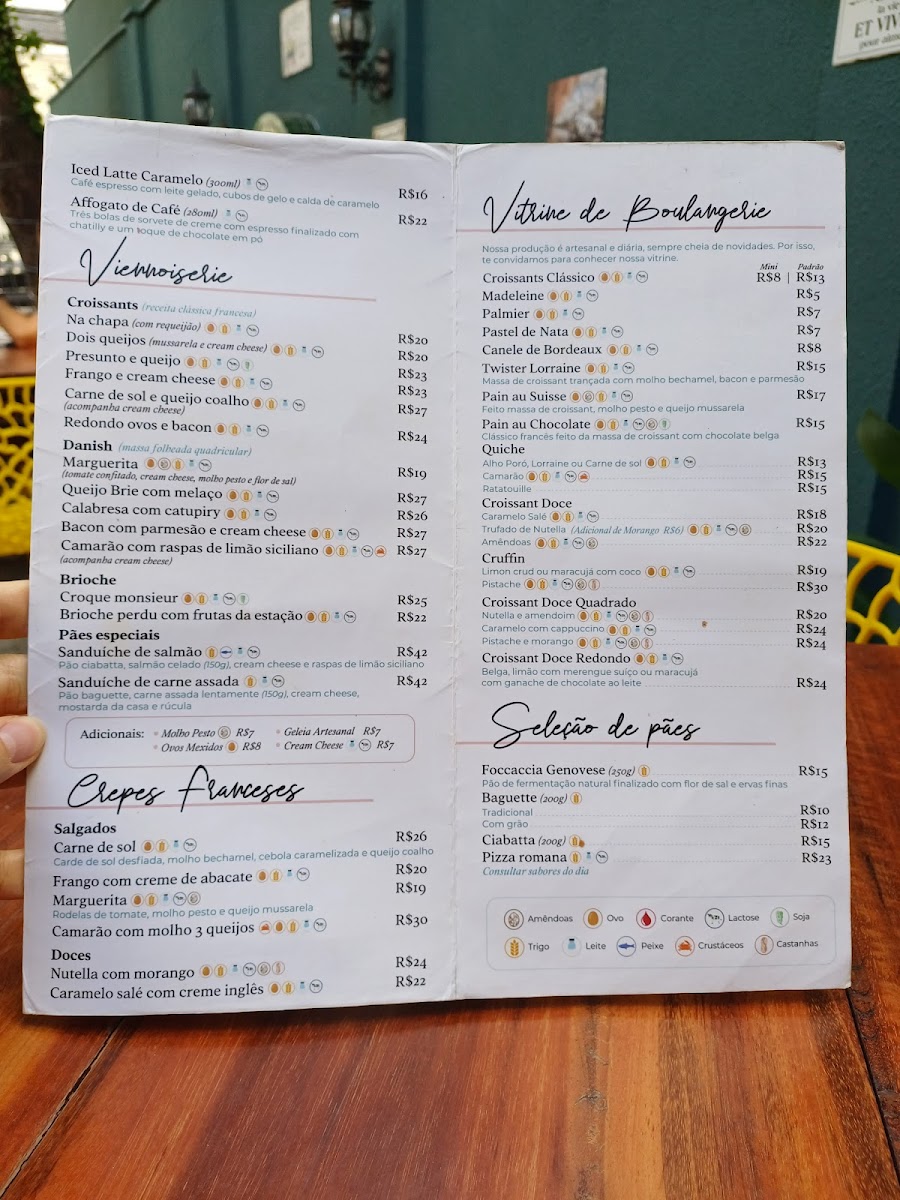 ET VIV
Iced Latte Caramelo (300ml) R$16
Café espresso com leite gelado, cubos de gelo e calda de caramelo
Affogato de Café (280ml) R$22
Três bolas de sorvete de creme com espresso finalizado com
chatilly e um toque de chocolate em pó
Viennoiserie
Croissants (receita clássica francesa)
Na chapa (com requeijão) R$20
Dois queijos (mussarela e cream cheese) R$20
Presunto e queijo R$23
Frango e cream cheese R$23
Carne de sol e queijo coalho R$27
(acompanha cream cheese)
Redondo ovos e bacon R$24
Danish (massa folheada quadricular)
Marguerita R$19
(tomate confitado, cream cheese, molho pesto e flor de sal)
Queijo Brie com melaço R$27
Calabresa com catupiry R$26
Bacon com parmesão e cream cheese R$27
Camarão com raspas de limão siciliano R$27
(acompanha cream cheese)
Brioche
Croque monsieur R$25
Brioche perdu com frutas da estação R$22
Pães especiais
Sanduíche de salmão R$42
Pão ciabatta, salmão celado (150g), cream cheese e raspas de limão siciliano
Sanduíche de carne assada R$42
Pão baguette, carne assada lentamente (150g), cream cheese,
mostarda da casa e rúcula
Adicionais: • Molho Pesto R$7 • Geleia Artesanal R$7
• Ovos Mexidos R$8 • Cream Cheese R$7
Crepes Franceses
Salgados
Carne de sol R$26
Carde de sol desfiada, molho bechamel, cebola caramelizada e queijo coalho
Frango com creme de abacate R$20
Marguerita R$19
Rodelas de tomate, molho pesto e queijo mussarela
Camarão com molho 3 queijos R$30
Doces
Nutella com morango R$24
Caramelo salé com creme inglês R$22
Vitrine de Boulangerie
Nossa produção é artesanal e diária, sempre cheia de novidades. Por isso,
te convidamos para conhecer nossa vitrine.
Mini Padrão
Croissants Clássico R$8 | R$13
Madeleine R$5
Palmier R$7
Pastel de Nata R$7
Canele de Bordeaux R$8
Twister Lorraine R$15
Massa de croissant trançada com molho bechamel, bacon e parmesão
Pain au Suisse R$17
Feito massa de croissant, molho pesto e queijo mussarela
Pain au Chocolate R$15
Clássico francês feito da massa de croissant com chocolate belga
Quiche
Alho Poró, Lorraine ou Carne de sol R$13
Camarão R$15
Ratatouille R$15
Croissant Doce
Caramelo Salé R$18
Trufado de Nutella (Adicional de Morango R$6) R$20
Amêndoas R$22
Cruffin
Limon crud ou maracujá com coco R$19
Pistache R$30
Croissant Doce Quadrado
Nutella e amendoim R$20
Caramelo com cappuccino R$24
Pistache e morango R$24
Croissant Doce Redondo
Belga, limão com merengue suiço ou maracujá
com ganache de chocolate ao leite R$24
Seleção de pães
Foccaccia Genovese (250g) R$15
Pão de fermentação natural finalizado com flor de sal e ervas finas
Baguette (200g)
Tradicional R$10
Com grão R$12
Ciabatta (200g) R$15
Pizza romana R$23
Consultar sabores do dia
Amêndoas Ovo Corante Lactose Soja
Trigo Leite Peixe Crustáceos Castanhas